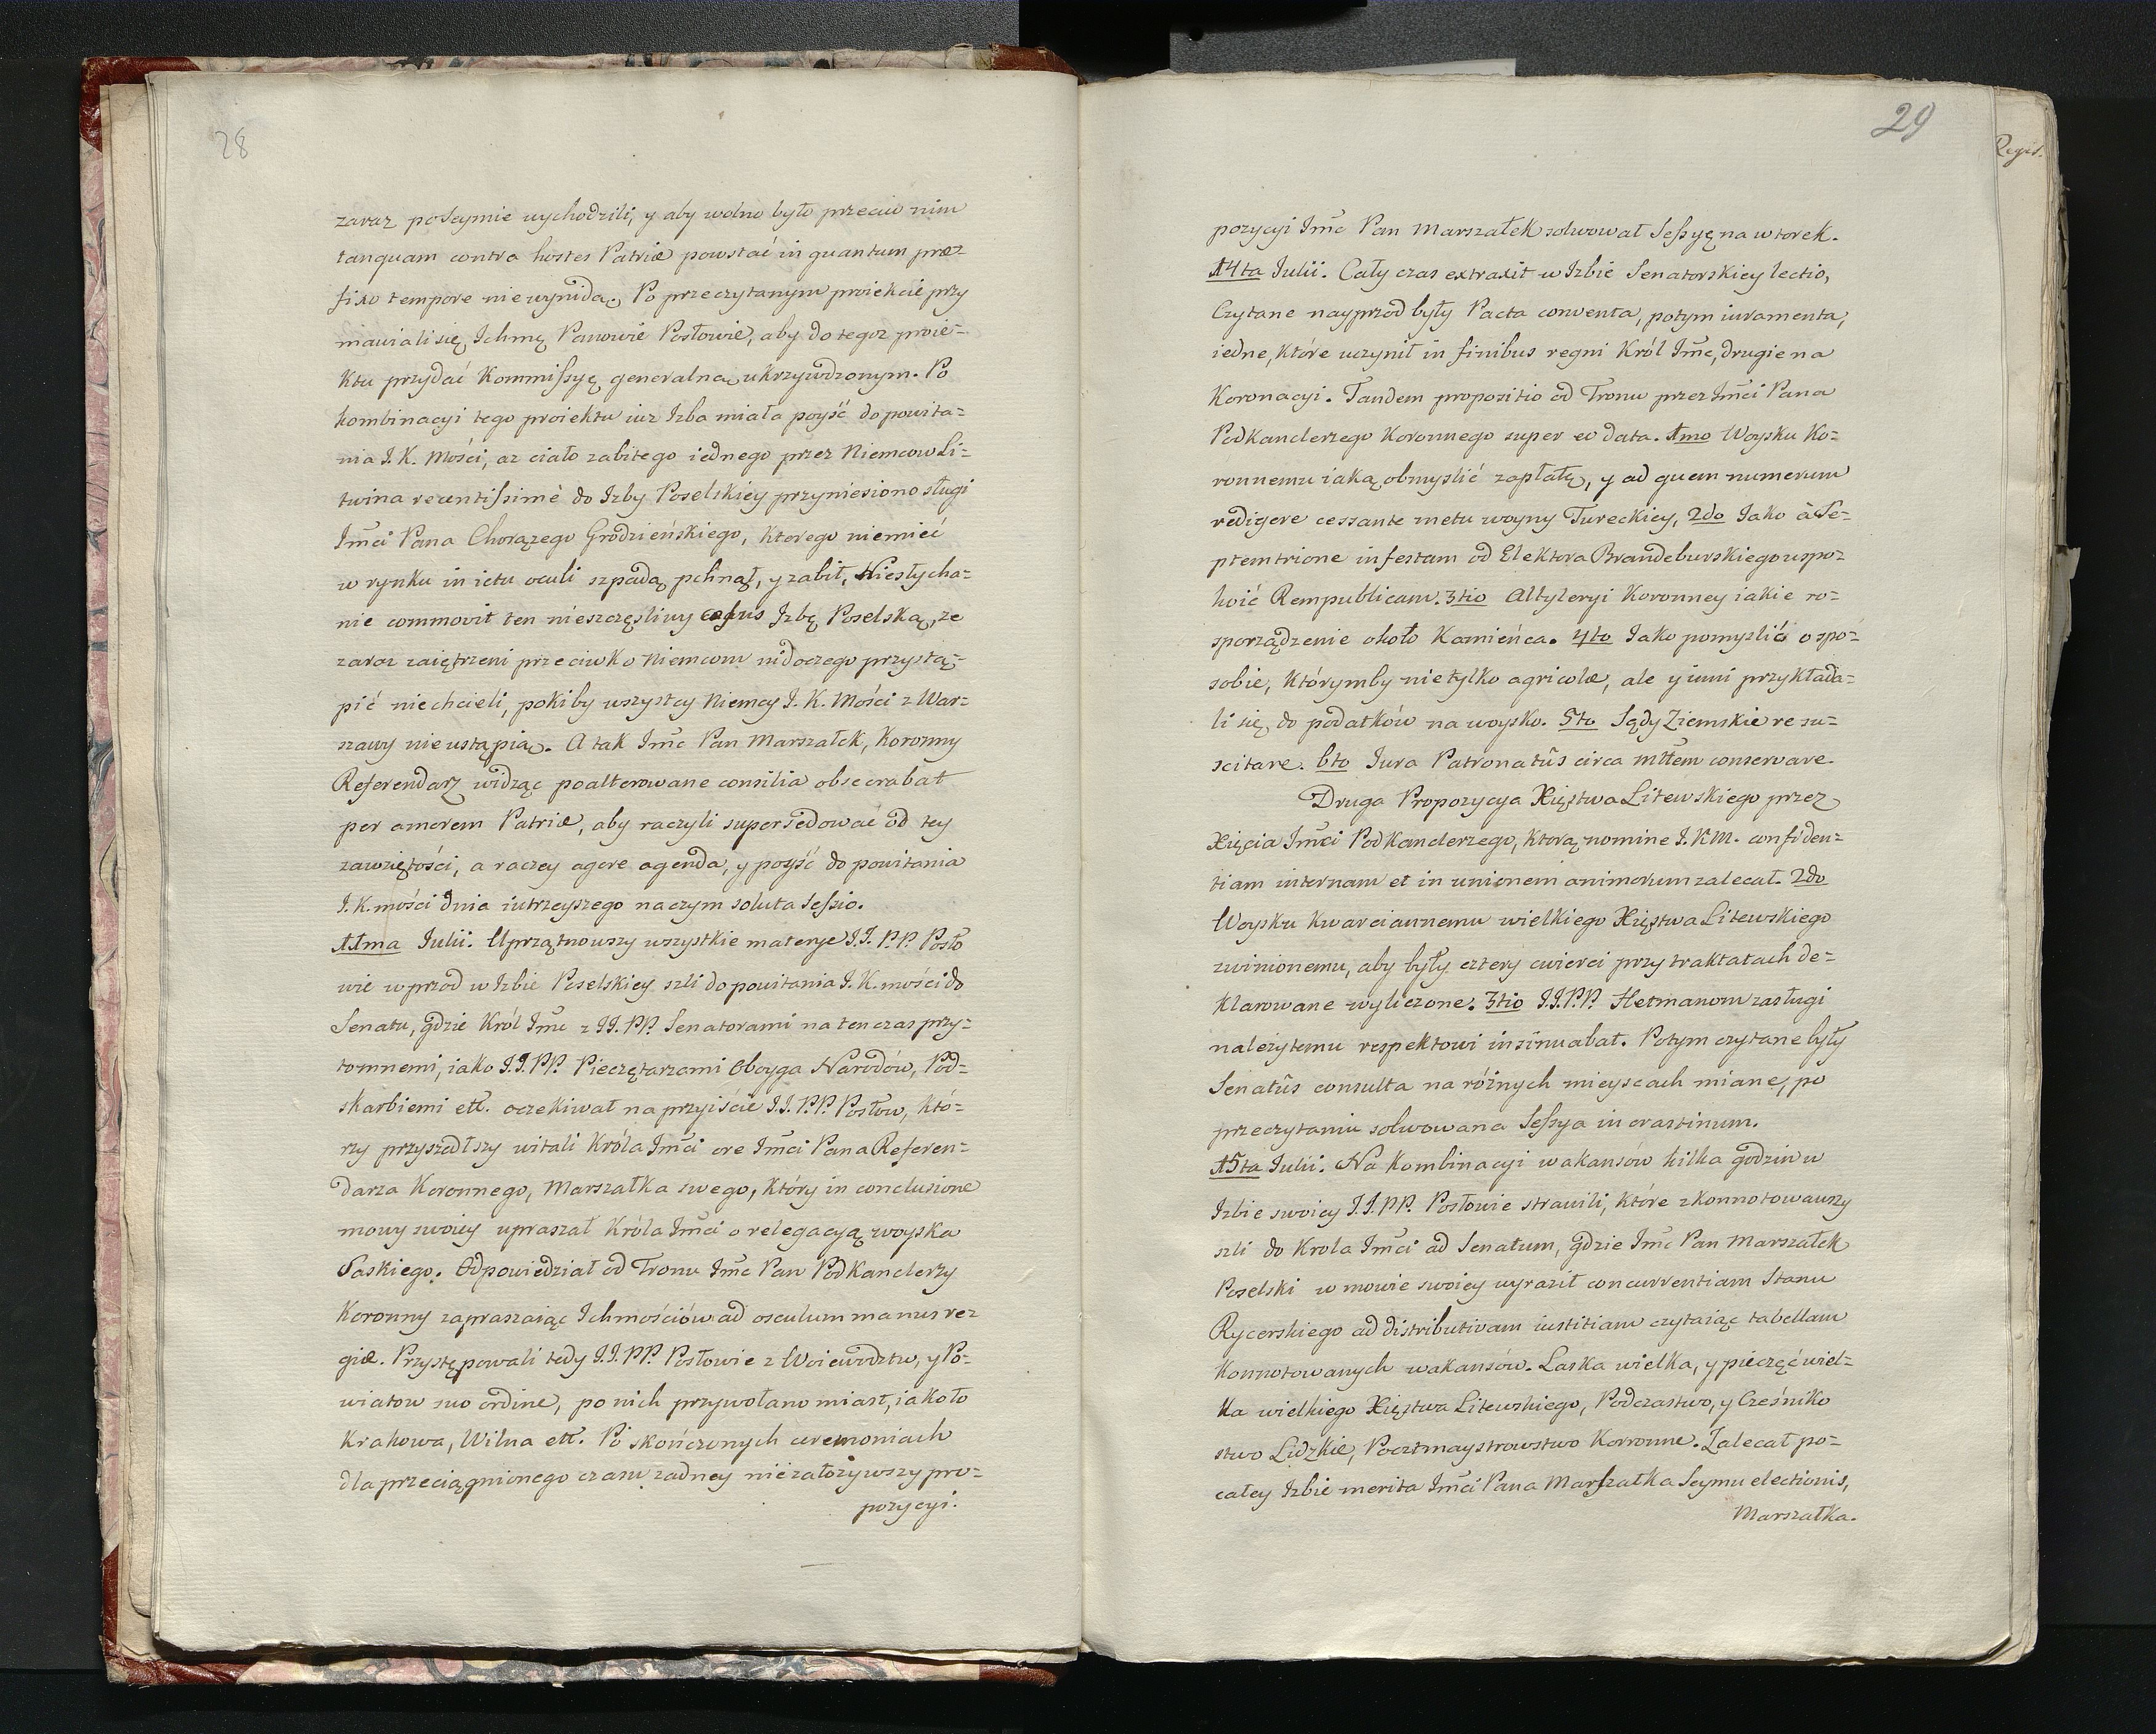 28
zaraz poseymie wychodzili, y aby wolno było przeciw nim
tanquam contra hostes Patriæ powstać in quantum præ=
fixo tempore niewynidą. Po przeczytanym proiekcie przy
mawiali się Ichmę Panowie Posłowie, aby do tegoz proie=
ktu przydać Kommissyę generalną ukrzywdzonym. Po
kombinacyi tego proiektu iuz Izba miała poyść do powita=
nia J. K. Mości, az ciało zabitego iednego przez Niemcow Li=
twina recentissimè do Izby Poselskiey przyniesiono sługi
Jmci Pana Chorązego Grodzieńskiego, ktorego niemieć
w rynku in ictu oculi szpadą pchnął, y zabił, Niesłycha=
nie commovit ten nieszczęsliwy casus Izbę Poselską, ze
zaraz zaiętrzeni przeciwko Niemcom nidoczego przystą=
pić niechcieli, pokiby wszystcy Niemcy J. K. Mości z War=
szawy nieustąpią. A tak Jmc Pan Marszałek, Koronny
Referendarz widząc poalterowane consilia obsecrabat
per amorem Patriæ, aby raczyli supersedować od tey
zawziętości, a raczey agere agenda, y poyść do powitania
J. K. mości dnia iutrzeyszego naczym soluta Sessio.
11ma Julii. Uprzątnowszy wszystkie materye J.J. P.P. Posło
wie w przod w Izbie Poselskiey szli do powitania J. K. mości do
Senatu, gdzie Król Jmc z JJ. PP. Senatorami na ten czas przy=
tomnemi, iako J.J. PP. Pieczętarzami Oboyga Narodów, Pod=
skarbiemi ett. oczekiwał na przyiście J.J. P.P. Posłow, któ=
rzy przyszedłszy witali Króla Jmci ore Jmci Pana Referen=
darza Koronnego, Marszałka swego, który in conclusione
mowy swoiey upraszał Króla Jmci o relegacyą woyska
Saskiego. Odpowiedział od Tronu Jmc Pan PodKanclerzy
Koronny zapraszaiąc Ichmościów ad osculum manus re=
giæ. Przystępowali tedy J.J. PP. Posłowie z Woiewodztw, y Po=
wiatow suo ordine, po nich przywołano miast, iako to
Krakowa, Wilna ett. Po skończonych ceremoniach
dla przeciągnionego czasu zadney niezałozywszy pro=
pozycyi.
29
Regest.
pozycyi Jmc Pan Marszałek solwował Sessyę na wtorek.
14ta Julii. Cały czas extraxit w Izbie Senatorskiey lectio,
Czytane nayprzod były Pacta conventa, potym iuramenta,
iedne, które uczynił in finibus regni Król Jmc, drugie na
Koronacyi. Tandem propozitio od Tronu przez Jmci Pana
PodKanclerzego Koronnego super eo data. 1mo Woysku Ko=
ronnemu iaką obmyslić zapłatę, y ad quem numerum
redigere cessante metu woyny Tureckiey, 2do Jako à Se=
ptemtrione infestam od Elektora Brandeburskiego uspo=
koić Rempublicam. 3tio Altyleryi Koronney iakie ro=
sporządzenie około Kamieńca. 4to Jako pomyslić o spo=
sobie, którymby nietylko agricolæ, ale y inni przykłada=
li się do podatków na woysko. 5to Sądy Ziemskie resu=
scitare. 6to Jura Patronatûs circa Mttem conservare.
Druga Propozycya Xięstwa Litewskiego przez
Xięcia Jmci PodKanclerzego, ktorą nomine J. K M. confiden=
tiam internam et in unionem animorum zalecał. 2do
Woysku Kwarciannemu wielkiego Xięstwa Litewskiego
zwinionemu, aby były cztery cwierci przy traktatach de=
klarowane wyliczone. 3tio J.J. P.P. Hetmanom zasługi
nalezytemu respektowi insinuabat. Potym czytane były
Senatûs consulta na róźnych mieyscach miane, po
przeczytaniu solwowana Sessya in crastinum.
15ta Julii. Na kombinacyi wakansów kilka godzin w
Izbie swoiey J.J. PP. Posłowie strawili, które zkonnotowawszy
szli do Krola Jmci ad Senatum, gdzie Jmc Pan Marszałek
Poselski w mowie swoiey wyraził concurrentiam Stanu
Rycerskiego ad distributivam iustitiam czytaiąc tabellam
Konnotowanych wakansów. Laska wielka, y pieczęć wiel=
ka wielkiego Xięstwa Litewskiego, Podczastwo, y Cześniko
stwo Lidzkie, Pocztmaystrowstwo Koronne. Zalecał po=
całey Izbie merita Jmci Pana Marszałka Seymu electionis,
Marszałka.